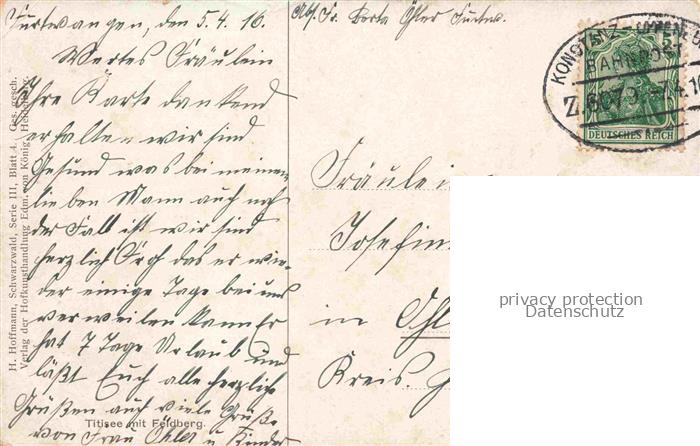 Furtwangen, den 5.4.16.
Wertes Fräulein
Ihre Karte dankend
erhalten wir sind
Gesund was bei meinem
lieben Mann auch noch
der Fall ist wir sind
herzlich froh das er wie-
der einige Tage bei uns
verweilen kann Er
hat 7 Tage Urlaub und
läßt Euch alle herzlich
Grüßen auch viele Grüße
von Frau Öhler u Kinder
Titisee mit Feldberg.
H. Hoffmann, Schwarzwald, Serie III, Blatt 4. Ges. gesch.
Verlag der Hofkunsthandlung Edm. von König, Heidelberg.
Abs. Fr. Berta Öhler Furtw.
KONSTANZ - OFFENBU
BAHNPOST
DEUTSCHES REICH
Fräulein
Josefin
in
Kreis.
privacy protection
Datenschutz